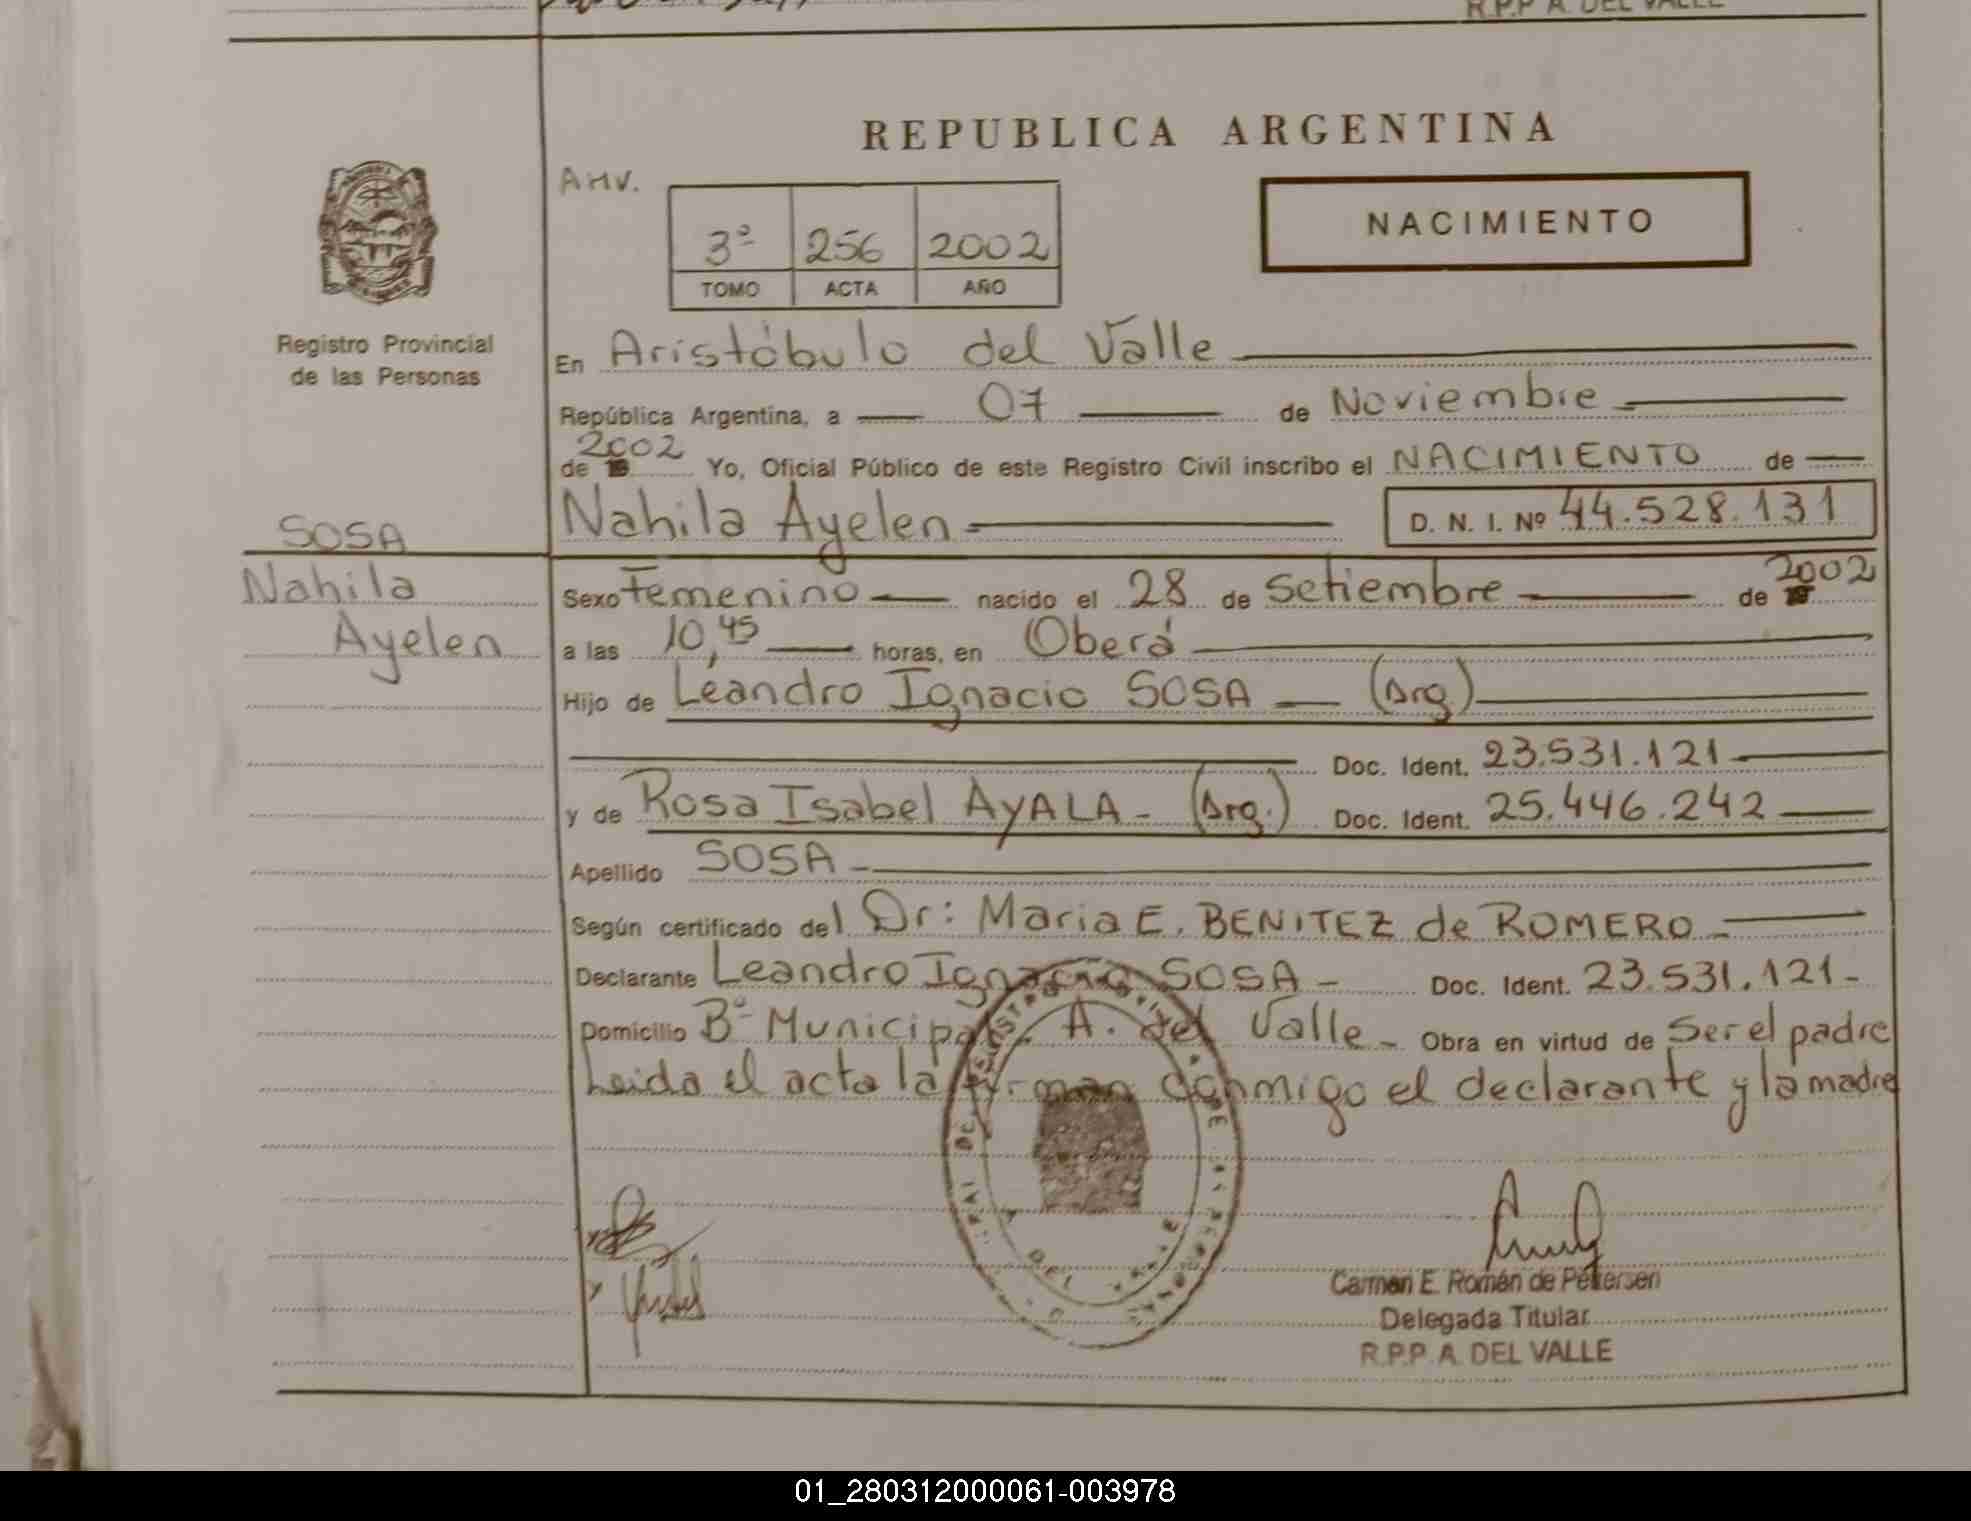 R.P.P A. DEL VALLE
REPUBLICA ARGENTINA
AHV.
NACIMIENTO
3º 256 2002
TOMO ACTA AÑO
Registro Provincial
de las Personas
En Aristóbulo del Valle
República Argentina, a 07 de Noviembre
de 19 2002 Yo, Oficial Público de este Registro Civil inscribo el NACIMIENTO de
Nahila Ayelen D. N. I. Nº 44.528.131
SOSA
Nahila
Ayelen
Sexo Femenino nacido el 28 de Setiembre de 19 2002
a las 10,45 horas, en Oberá
Hijo de Leandro Ignacio SOSA (Arg)
Doc. Ident. 23.531.121
y de Rosa Isabel AYALA - (Arg.) Doc. Ident. 25.446.242
Apellido SOSA
Según certificado del Dr: Maria E. BENITEZ de ROMERO
Declarante Leandro Ignacio SOSA - Doc. Ident. 23.531.121-
Domicilio Bº Municipal A. del Valle - Obra en virtud de Ser el padre
Leida el acta la firman conmigo el declarante y la madre
DEL VALLE
Carmen E. Román de Petersen
Delegada Titular
R.P.P. A. DEL VALLE
01_280312000061-003978